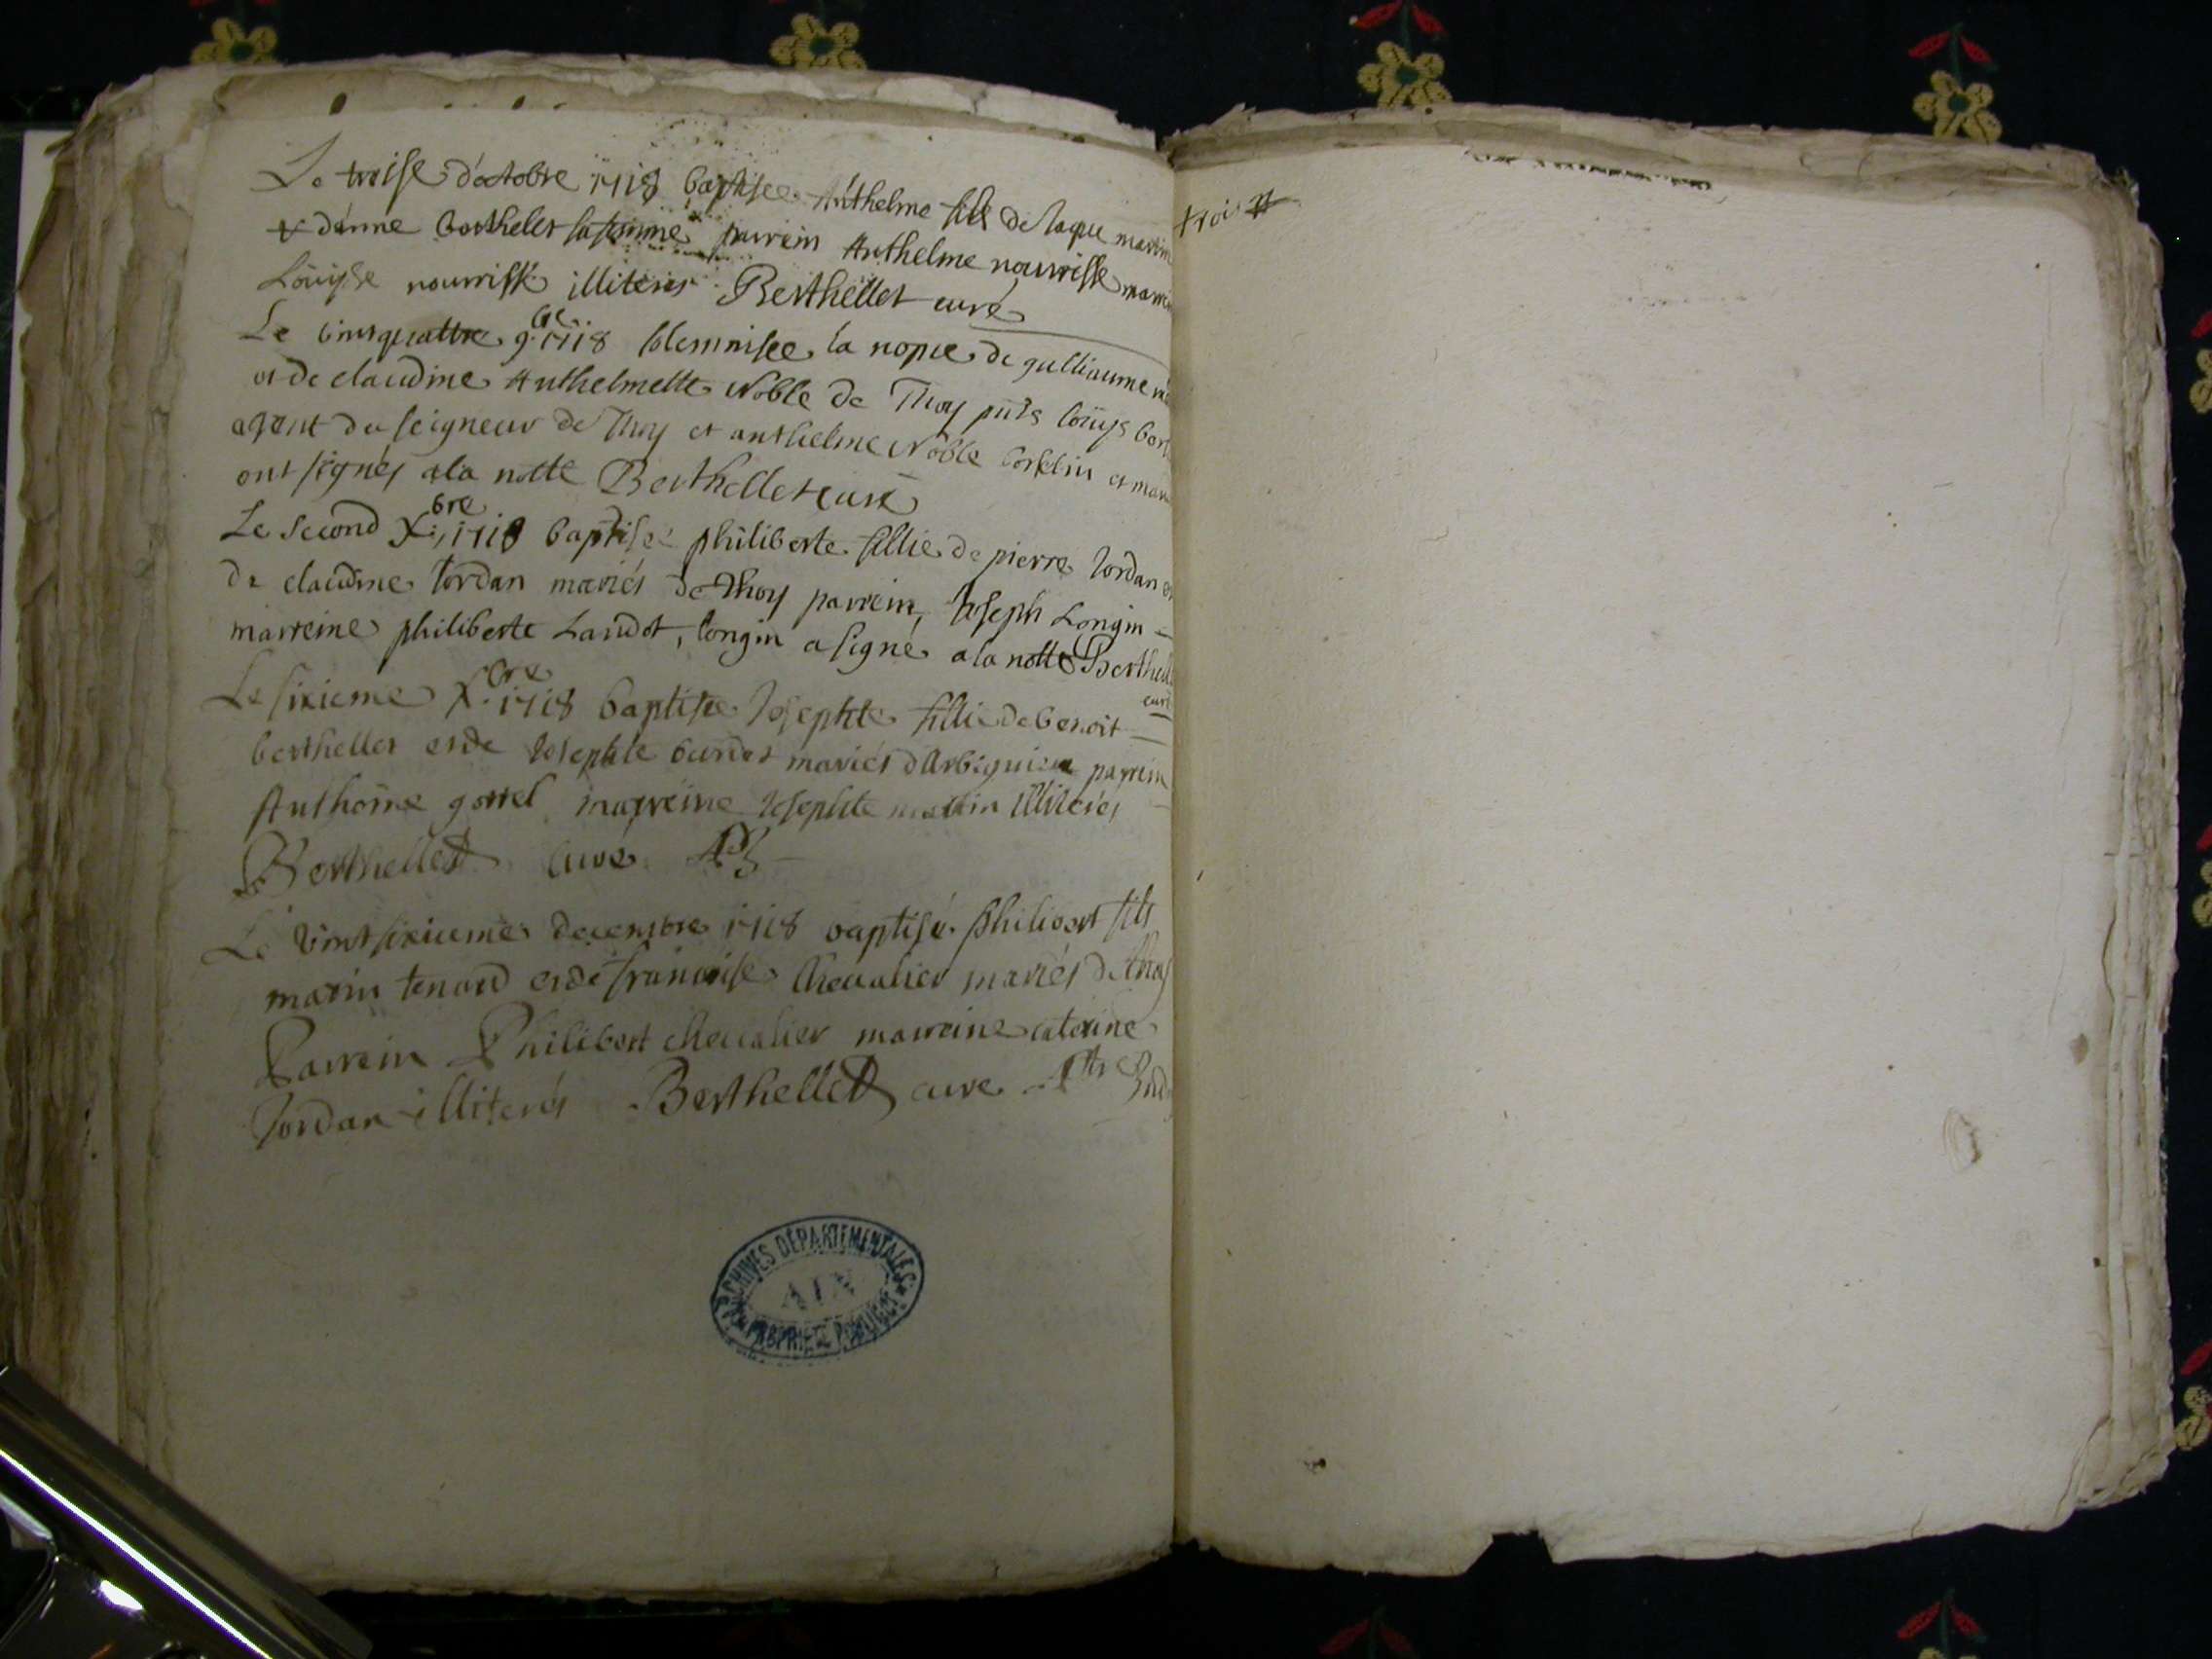 Le treise d'octobre 1718 baptisee Anthelme fils de Jaque martin
& d'anne berthelet sa femme parrein Anthelme nourrisse marrei
Loüyse nourrisse illiterés Berthellet curé
Le vint quattre 9.bre 1718 solemnisee la nopce de gulliaume
et de claudine Anthelmette Noble de Thoy pnts loüys bert
agent du seigneur de Thoy et anthelme Noble et mar
ont signés a la notte Berthellet curé
Le second X.bre 1718 baptisee philiberte fillie de pierre Jordan et
de claudine Jordan mariés de Thoy parrein, Joseph Longin
marreine philiberte Landot, longin a signé a la notte Berthell
curé
Le sixieme X.bre 1718 baptisee Josephte fillie de benoit
berthellet et de Josephte mariés d'Arbignieu parrein
Anthoine gottel marreine Josephte martin illiterés
Berthellet cure
Le vint sixieme decembre 1718 baptisé philibert fils
marin tenand et de francoise Chevalier mariés de Thoy
Parrein Philibert chevalier marreine caterine
Jordan illiterés Berthellet cure
trois
ARCHIVES DÉPARTEMENTALES
AIN
PROPRIÉTÉ PUBLIQUE